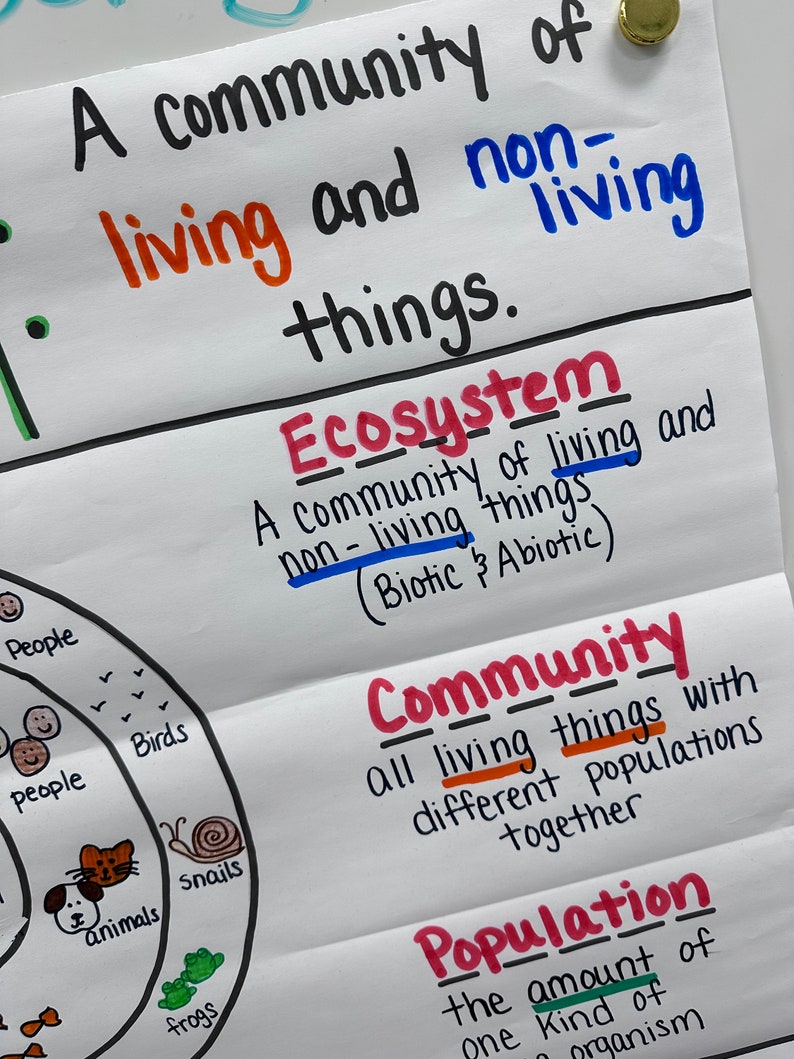 A community of
living and non-
living
things.
Ecosystem
A community of living and
non-living things
(Biotic & Abiotic)
People
Birds
people
snails
animals
frogs
Community
all living things with
different populations
together
Population
the amount of
one kind of
organism